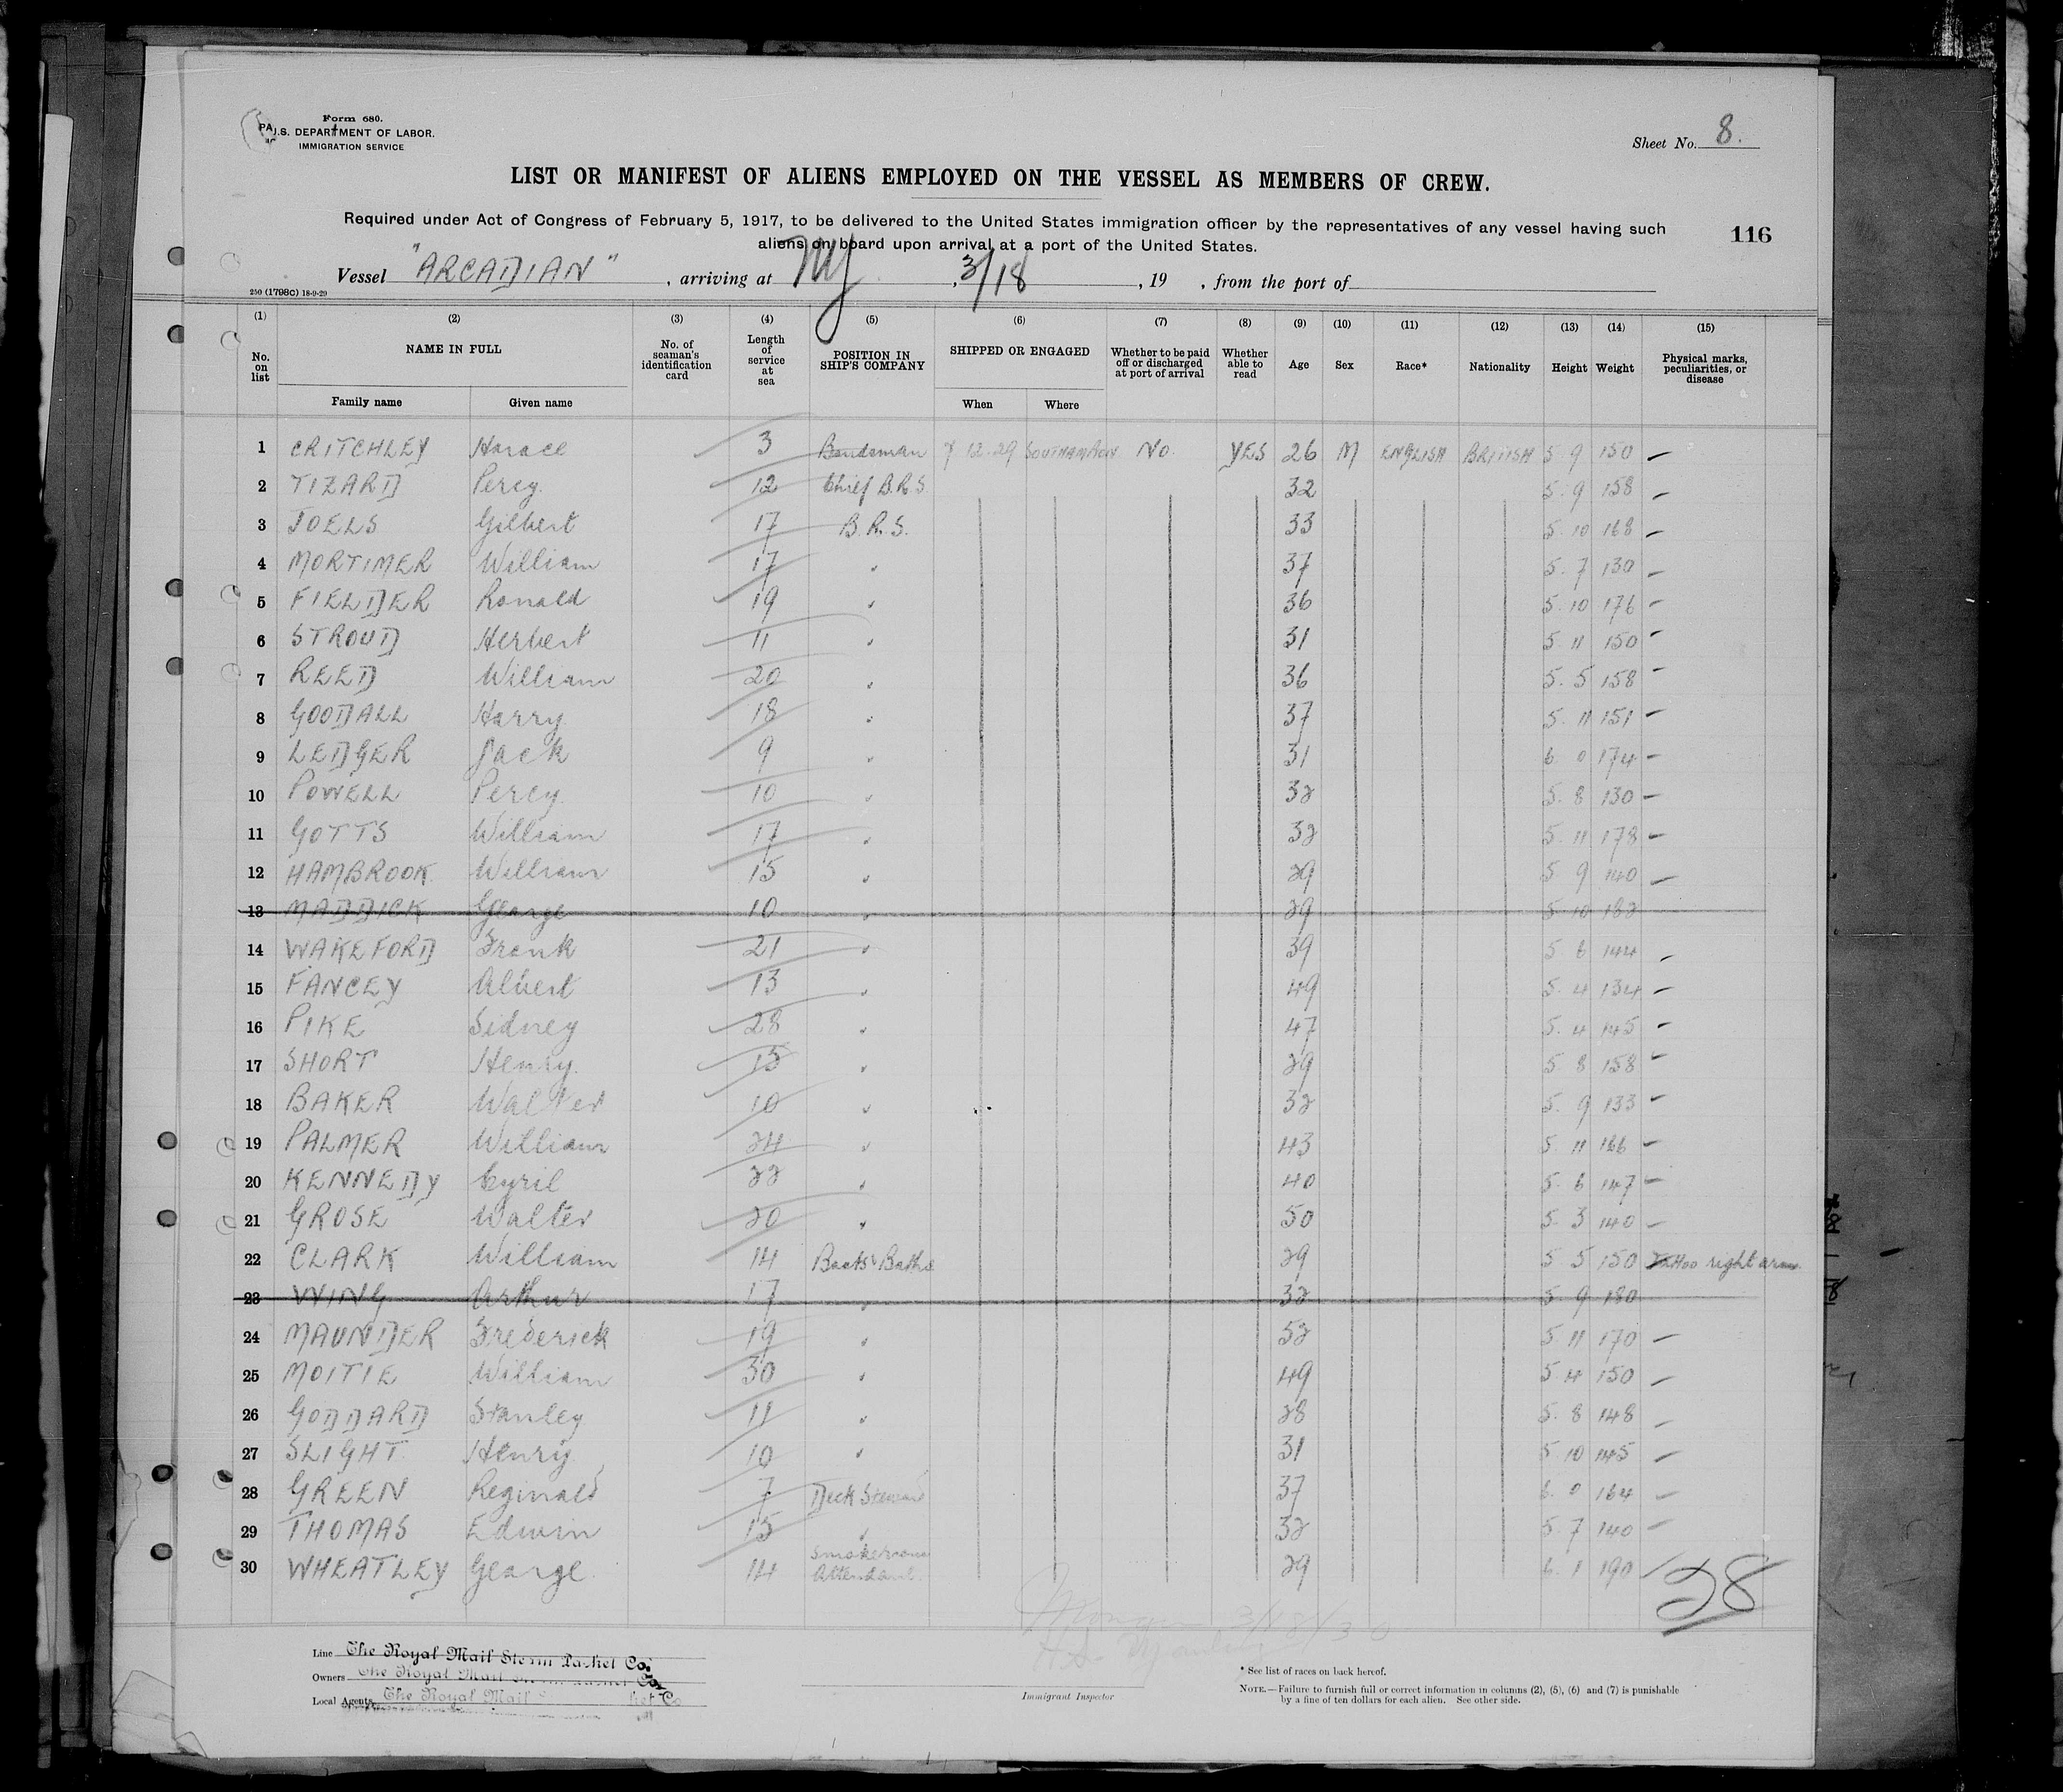 Form 680.
U.S. DEPARTMENT OF LABOR.
IMMIGRATION SERVICE
Sheet No. 8.
LIST OR MANIFEST OF ALIENS EMPLOYED ON THE VESSEL AS MEMBERS OF CREW.
Required under Act of Congress of February 5, 1917, to be delivered to the United States immigration officer by the representatives of any vessel having such
aliens on board upon arrival at a port of the United States.
116
Vessel "ARCADIAN", arriving at NY, 3/18, 19 , from the port of
250 (1798c) 18-9-29
(1) (2) (3) (4) (5) (6) (7) (8) (9) (10) (11) (12) (13) (14) (15)
No. on list NAME IN FULL No. of seaman's identification card Length of service at sea POSITION IN SHIP'S COMPANY SHIPPED OR ENGAGED Whether to be paid off or discharged at port of arrival Whether able to read Age Sex Race* Nationality Height Weight Physical marks, peculiarities, or disease
Family name Given name When Where
1 CRITCHLEY Horace 3 Bandsman 7 12-29 SOUTHAMPTON No. YES 26 M ENGLISH BRITISH 5 9 150 —
2 TIZARD Percy. 12 Chief B.R.S. 32 5. 9 158 —
3 JOELS Gilbert 17 B.R.S. 33 5. 10 168 —
4 MORTIMER William 17 " 37 5. 7 130 —
5 FIELDER Ronald 19 " 36 5. 10 176 —
6 STROUD Herbert 11 " 31 5 11 150 —
7 REED William 20 " 36 5. 5 158 —
8 GOODALL Harry 18 " 37 5. 11 151 —
9 LEDGER Jack 9 " 31 6. 0 174 —
10 POWELL Percy 10 " 32 5. 8 130 —
11 GOTTS William 17 " 32 5. 11 178 —
12 HAMBROOK. William 15 " 29 5 9 140 —
13 MADDICK George 10 " 29 5 10 182
14 WAKEFORD Frank 21 " 39 5 6 144 —
15 FANCEY Albert 13 " 49 5. 4 134 —
16 PIKE Sidney 28 " 47 5. 4 145 —
17 SHORT Henry. 15 " 29 5 8 158 —
18 BAKER Walter 10 " 32 5. 9 133 —
19 PALMER William 24 " 43 5. 11 166 —
20 KENNEDY Cyril 22 " 40 5. 6 147 —
21 GROSE Walter 20 " 50 5. 3 140 —
22 CLARK William 14 Boots & Baths 29 5 5 150 Tattoo right arm.
23 WING Arthur 17 " 32 5. 9 180
24 MAUNDER Frederick 19 " 52 5 11 170 —
25 MOITIE William 30 " 49 5 4 150 —
26 GODDARD Stanley 11 " 28 5. 8 148 —
27 SLIGHT Henry 10 " 31 5 10 145 —
28 GREEN Reginald 7 Deck Steward 37 6. 0 164 —
29 THOMAS Edwin 15 " 32 5 7 140 —
30 WHEATLEY George. 14 Smokeroom Attendant. 29 6. 1 190 —
28
3/18/30
Line The Royal Mail Steam Packet Co.
Owners The Royal Mail
Local Agents The Royal Mail
Immigrant Inspector
* See list of races on back hereof.
NOTE.—Failure to furnish full or correct information in columns (2), (5), (6) and (7) is punishable
by a fine of ten dollars for each alien. See other side.